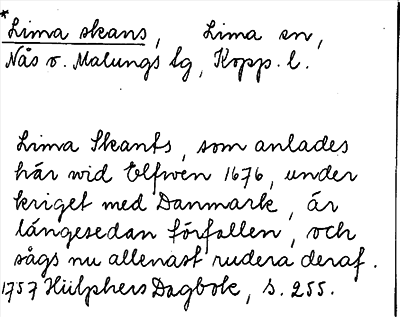 *Lima skans, Lima sn,
Nås o. Malungs lg, Kopp. l.
Lima Skants, som anlades
här wid Elfwen 1676, under
kriget med Danmark, är
längesedan förfallen, och
sågs nu allenast rudera deraf.
1757 Hülphers Dagbok, s. 255.